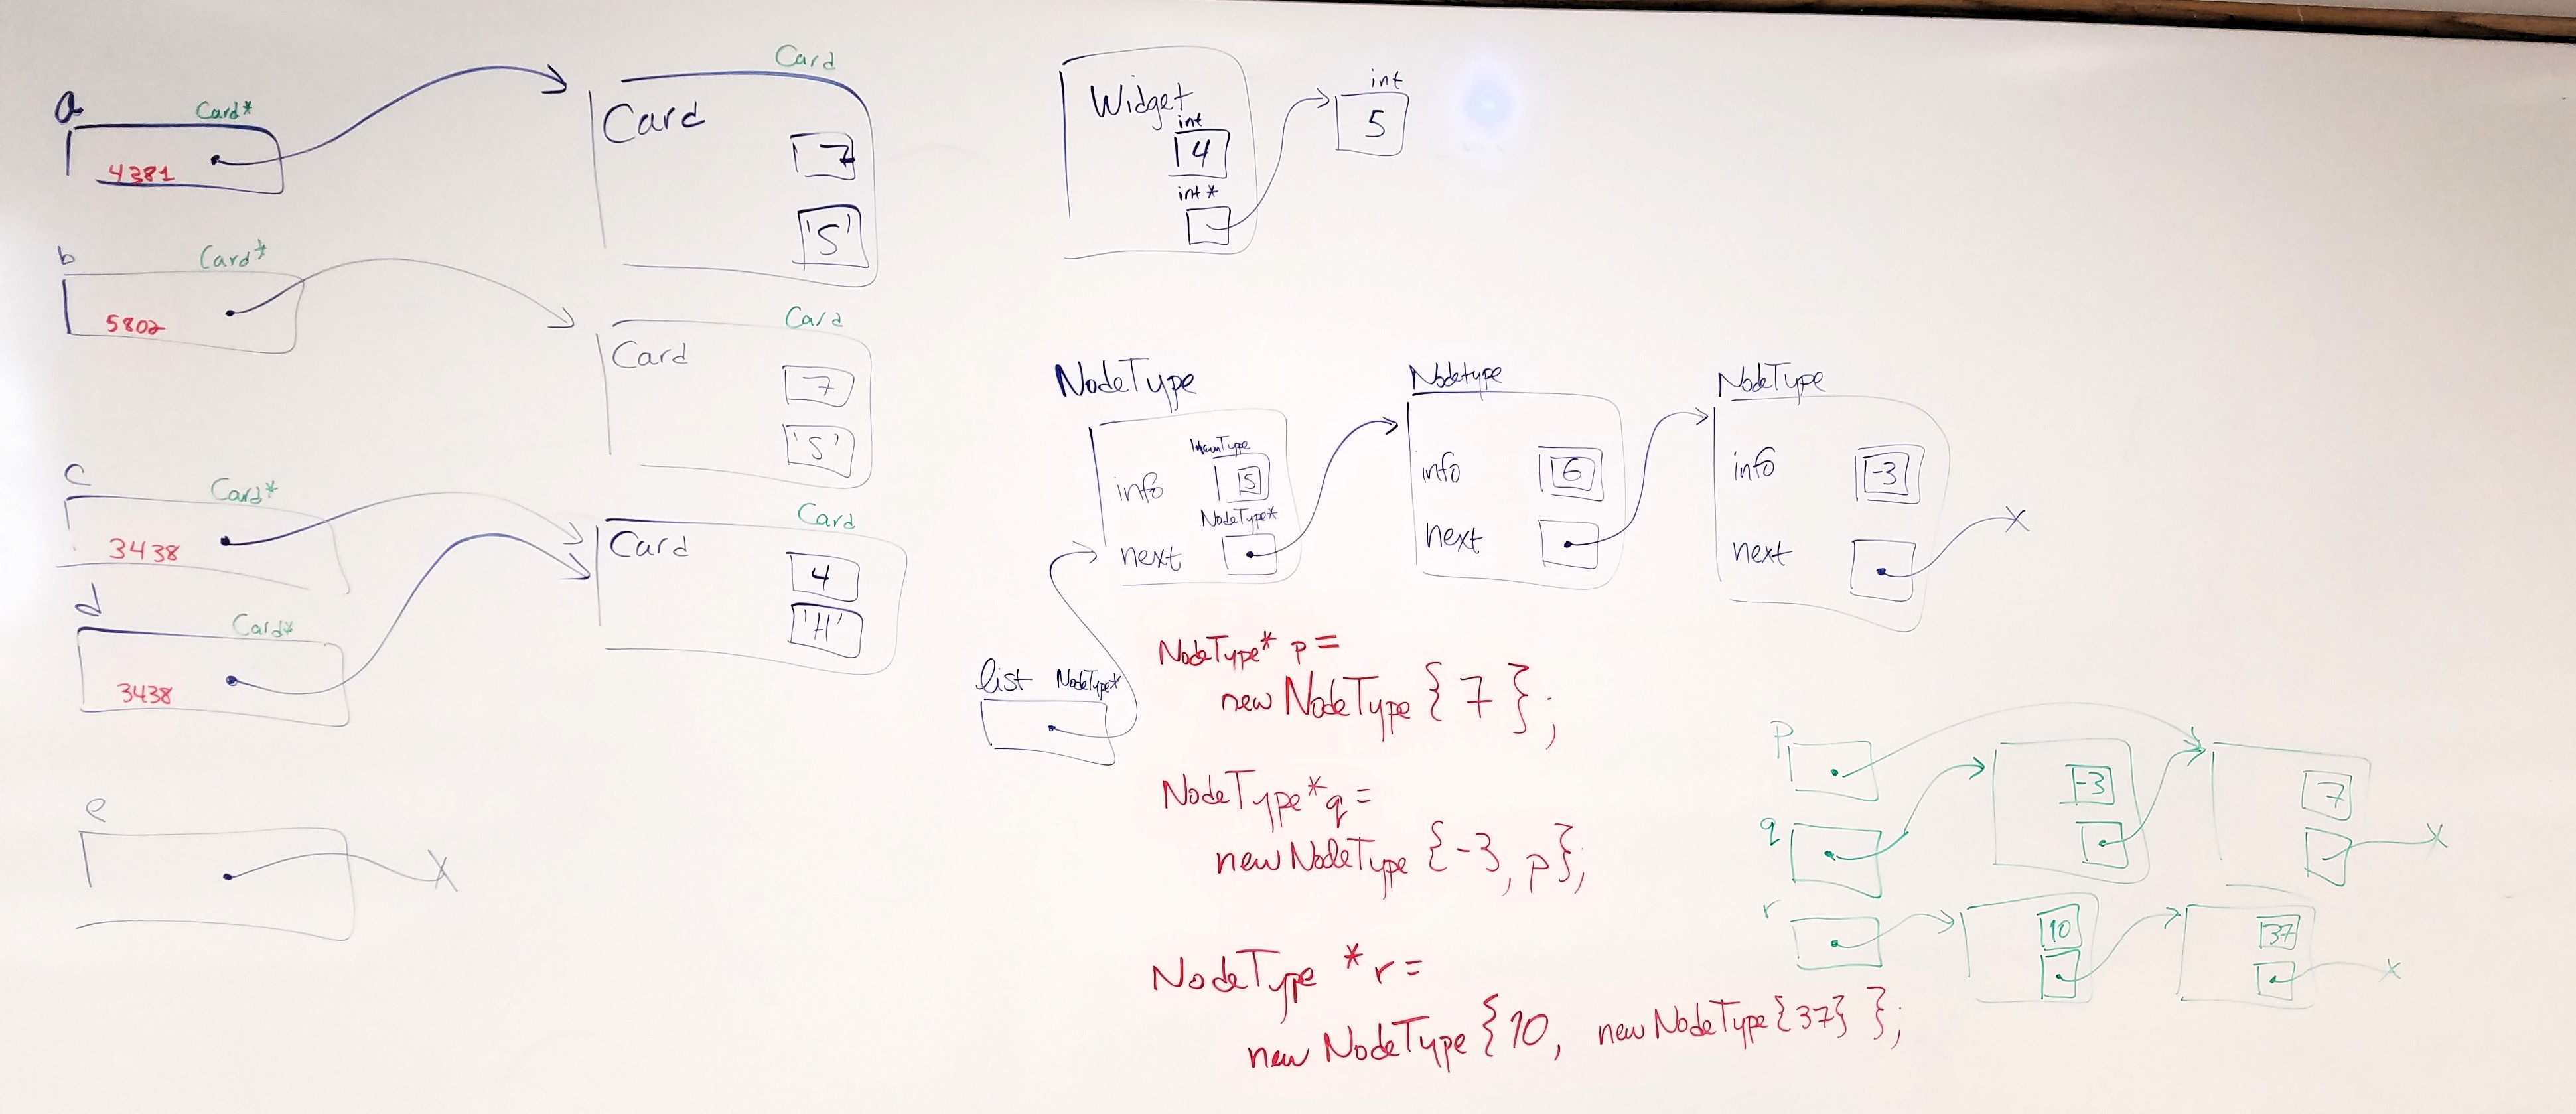 a
Card*
4381
Card
Card
7
'S'
b
Card*
5802
Card
Card
7
'S'
c
Card*
3438
Card
Card
4
'H'
d
Card*
3438
e
X
Widget
int
4
int *
int
5
NodeType
info
ItemType
5
NodeType*
next
Nodetype
info
6
next
NodeType
info
-3
next
X
list NodeType*
NodeType* p =
new NodeType { 7 };
NodeType* q =
new NodeType {-3, p};
NodeType * r =
new NodeType {10, new NodeType {37} };
p
q
-3
7
X
r
10
37
X